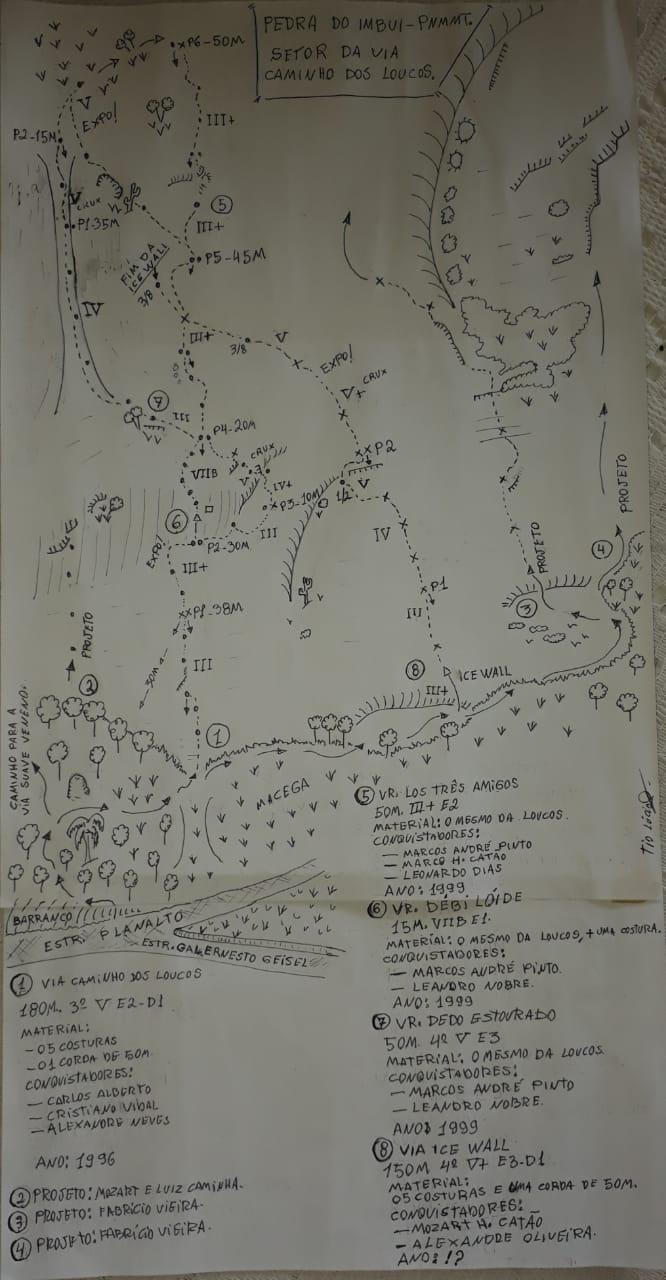 PEDRA DO IMBUI-PNMMT.
SETOR DA VIA
CAMINHO DOS LOUCOS.
P6-50M
V
EXPO!
III+
P2-15M
V
CRUX
P1-35M
5
III+
P5-45M
FIM DA
ICE WALL
3/8
IV
III+
3/8
V
EXPO!
V+
CRUX
7
III
P4-20M
CRUX
V
P2
VIIB
IV+
V
1/2
P3-10M
6
EXPO!
P2-30M
III
IV
III+
P1
P1-38M
III
50M
III
PROJETO
PROJETO
4
3
PROJETO
2
8
ICE WALL
III+
1
CAMINHO PARA A
VIA SUAVE VENENO.
MACEGA
BARRANCO
ESTR. PLANALTO
ESTR. GAL ERNESTO GEISEL
1 VIA CAMINHO DOS LOUCOS
180M. 3º V E2-D1
MATERIAL:
-05 COSTURAS
-01 CORDA DE 50M.
CONQUISTADORES:
- CARLOS ALBERTO
- CRISTIANO VIDAL
- ALEXANDRE NEVES
ANO: 1996
2 PROJETO: MOZART E LUIZ CAMINHA.
3 PROJETO: FABRÍCIO VIEIRA.
4 PROJETO: FABRÍCIO VIEIRA.
5 VR. LOS TRÊS AMIGOS
50M. III+ E2
MATERIAL: O MESMO DA LOUCOS.
CONQUISTADORES:
- MARCOS ANDRÉ PINTO
- MARCO H. CATÃO
- LEONARDO DIAS
ANO: 1999
6 VR. DEBI LÓIDE
15M. VIIB E1.
MATERIAL: O MESMO DA LOUCOS, + UMA COSTURA.
CONQUISTADORES:
- MARCOS ANDRÉ PINTO.
- LEANDRO NOBRE.
ANO: 1999
7 VR. DEDO ESTOURADO
50M. 4º V E3
MATERIAL: O MESMO DA LOUCOS.
CONQUISTADORES:
- MARCOS ANDRÉ PINTO
- LEANDRO NOBRE.
ANO: 1999
8 VIA ICE WALL
150M 4º V+ E3-D1
MATERIAL:
05 COSTURAS E UMA CORDA DE 50M.
CONQUISTADORES:
- MOZART H. CATÃO
- ALEXANDRE OLIVEIRA.
ANO: !?